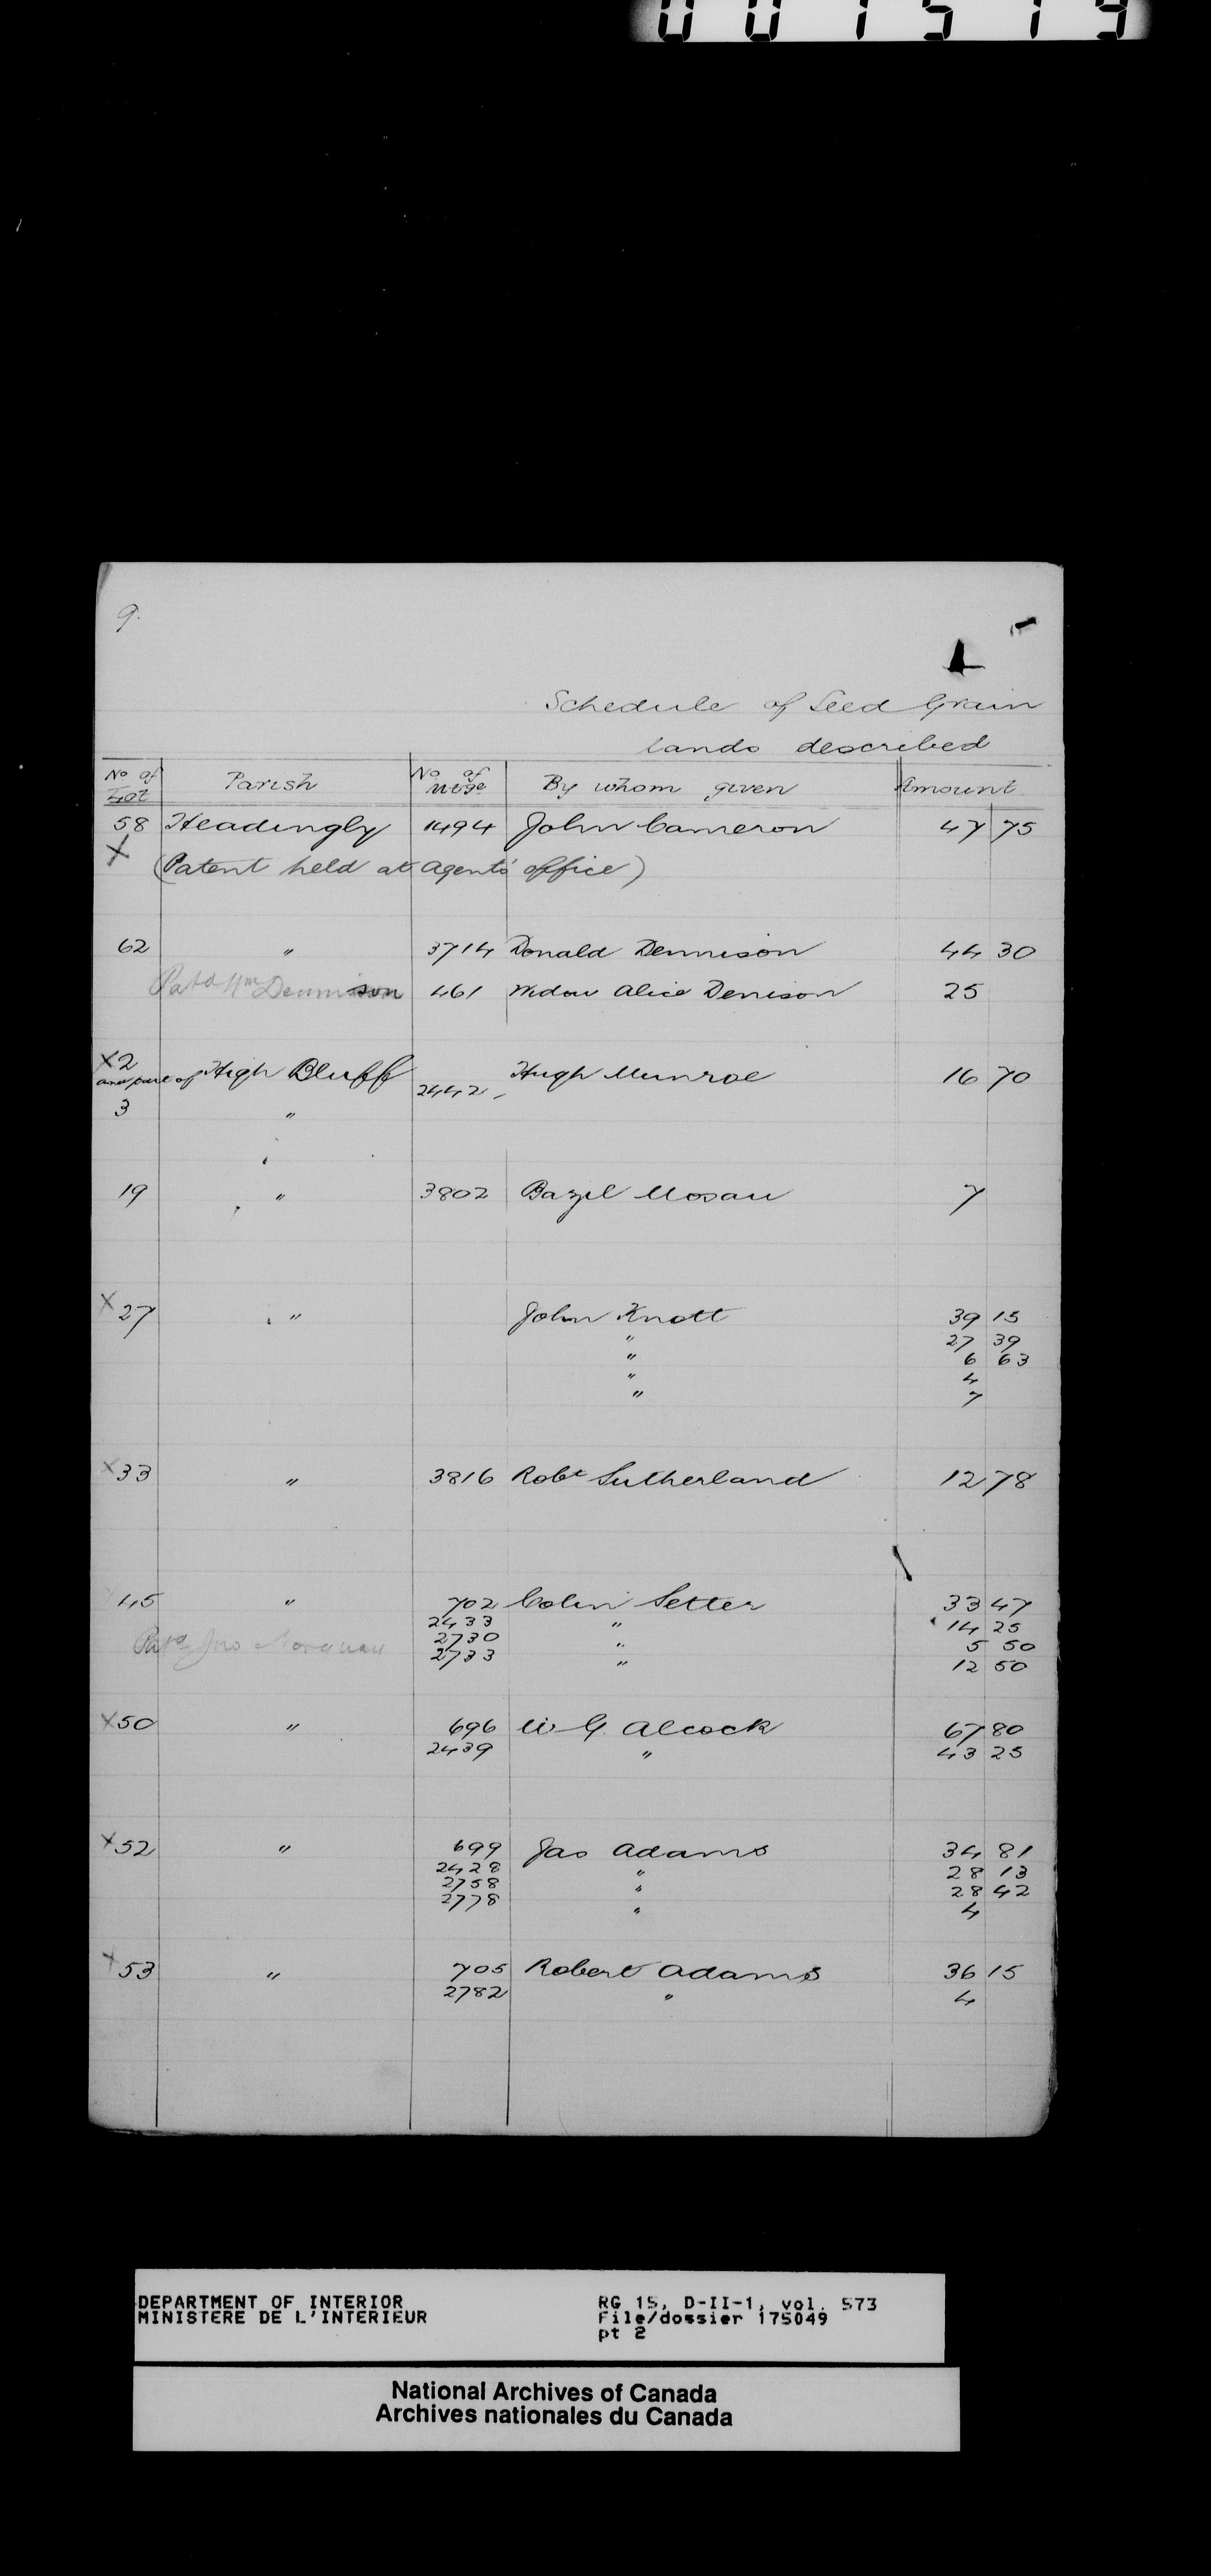 001519
9.
Schedule of Seed Grain
lands described
No of Lot Parish No of Mtge By whom given Amount
58 Headingly 1494 John Cameron 47 75
X (Patent held at Agents' office)
62 " 3714 Donald Dennison 44 30
Patd Wm Dennison 461 Widow Alice Denison 25
X2 and part of High Bluff 2442 Hugh Munroe 16 70
3 "
19 " 3802 Bazil Mosau 7
X 27 " John Knott 39 15
" 27 39
" 6 63
" 4
" 7
X 33 " 3816 Robt Sutherland 12 78
45 " 702 Colin Setter 33 47
2433 " 14 25
Patd Jno Norquay 2730 " 5 50
2733 " 12 50
X 50 " 696 W G. Alcock 67 80
2439 " 43 25
X 52 " 699 Jas Adams 34 81
2428 " 28 13
2758 " 28 42
2778 " 4
X 53 " 705 Robert Adams 36 15
2782 " 4
DEPARTMENT OF INTERIOR RG 15, D-II-1, vol. 573
MINISTERE DE L'INTERIEUR File/dossier 175049
pt 2
National Archives of Canada
Archives nationales du Canada